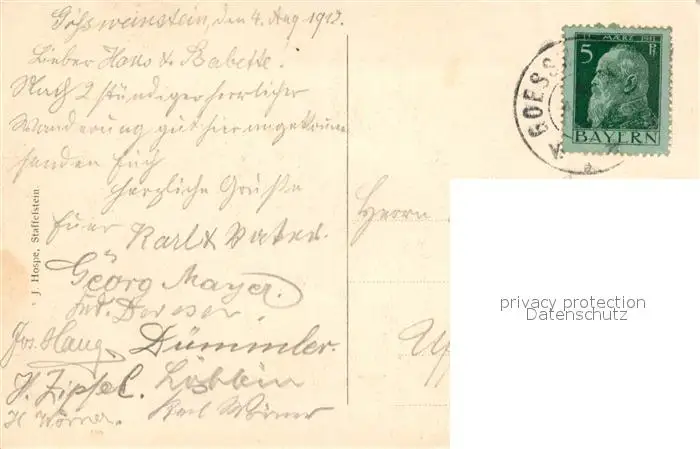 Gößweinstein, den 4. Aug 1912.
Lieber Hans & Babette.
Nach 2 stündiger herrlicher
Wanderung gut hier angekomm
senden Euch
herzliche Grüße
Euer Karl & Vater.
Georg Mayer.
Jos. Haug. Dümmler.
H. Zipfel.
H Wörner. Karl Wörner
J. Hospe, Staffelstein.
Herrn
12 MÄRZ 1911
5 Pf
BAYERN
GOESS
privacy protection
Datenschutz